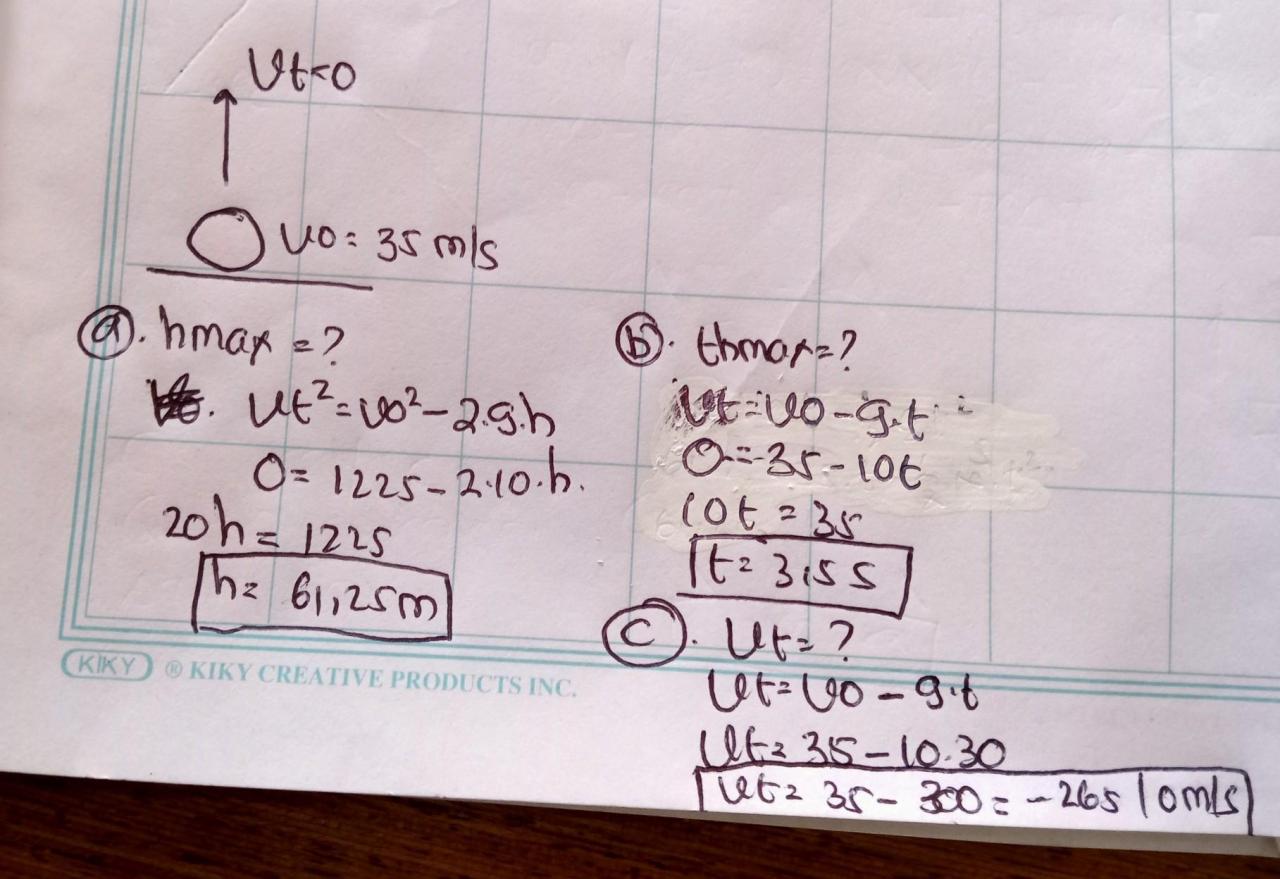 Vt<0
Vo = 35 m/s
a. hmax = ?
Vt² = Vo² – 2.g.h
0 = 1225 – 2.10.h.
20h = 1225
h = 61,25m
b. thmax = ?
Vt = Vo – g.t
0 = 35 – 10t
10t = 35
t = 3,5 s
c. Vt = ?
Vt = Vo – g.t
Vt = 35 – 10.30
Vt = 35 – 300 = –265 | 0 m/s
KIKY ® KIKY CREATIVE PRODUCTS INC.